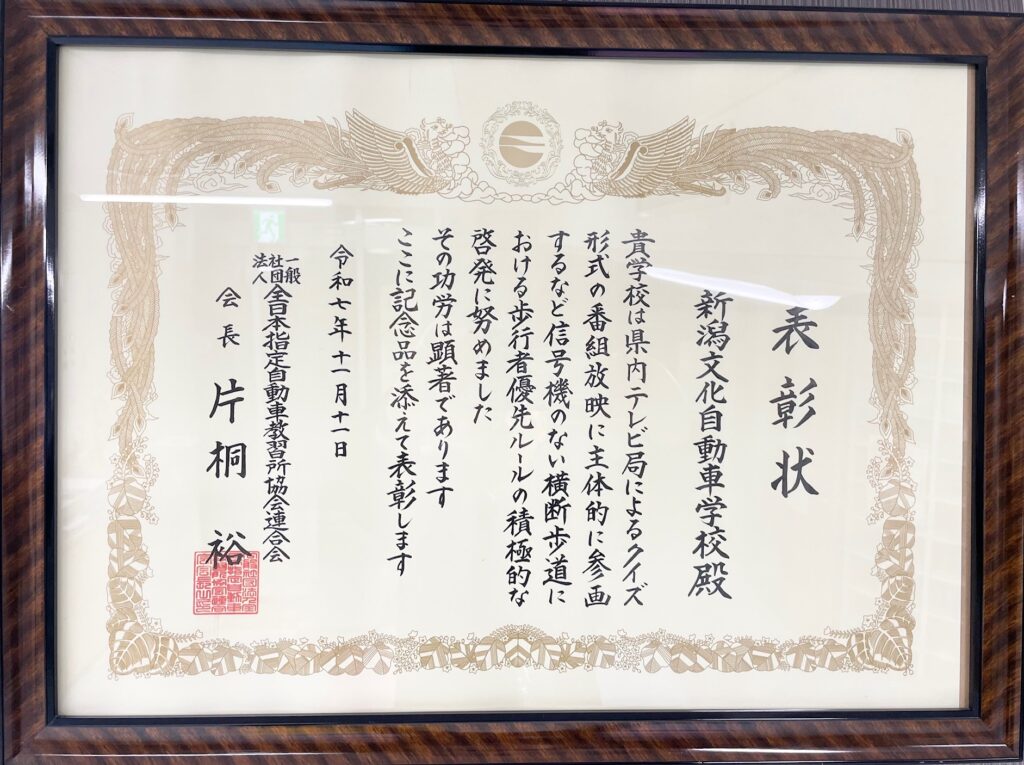 表彰状
新潟文化自動車学校殿
貴学校は県内テレビ局によるクイズ
形式の番組放映に主体的に参画
するなど信号機のない横断歩道に
おける歩行者優先ルールの積極的な
啓発に努めました
その功労は顕著であります
ここに記念品を添えて表彰します
令和七年十一月十一日
一般社団法人全日本指定自動車教習所協会連合会
会長 片桐 裕